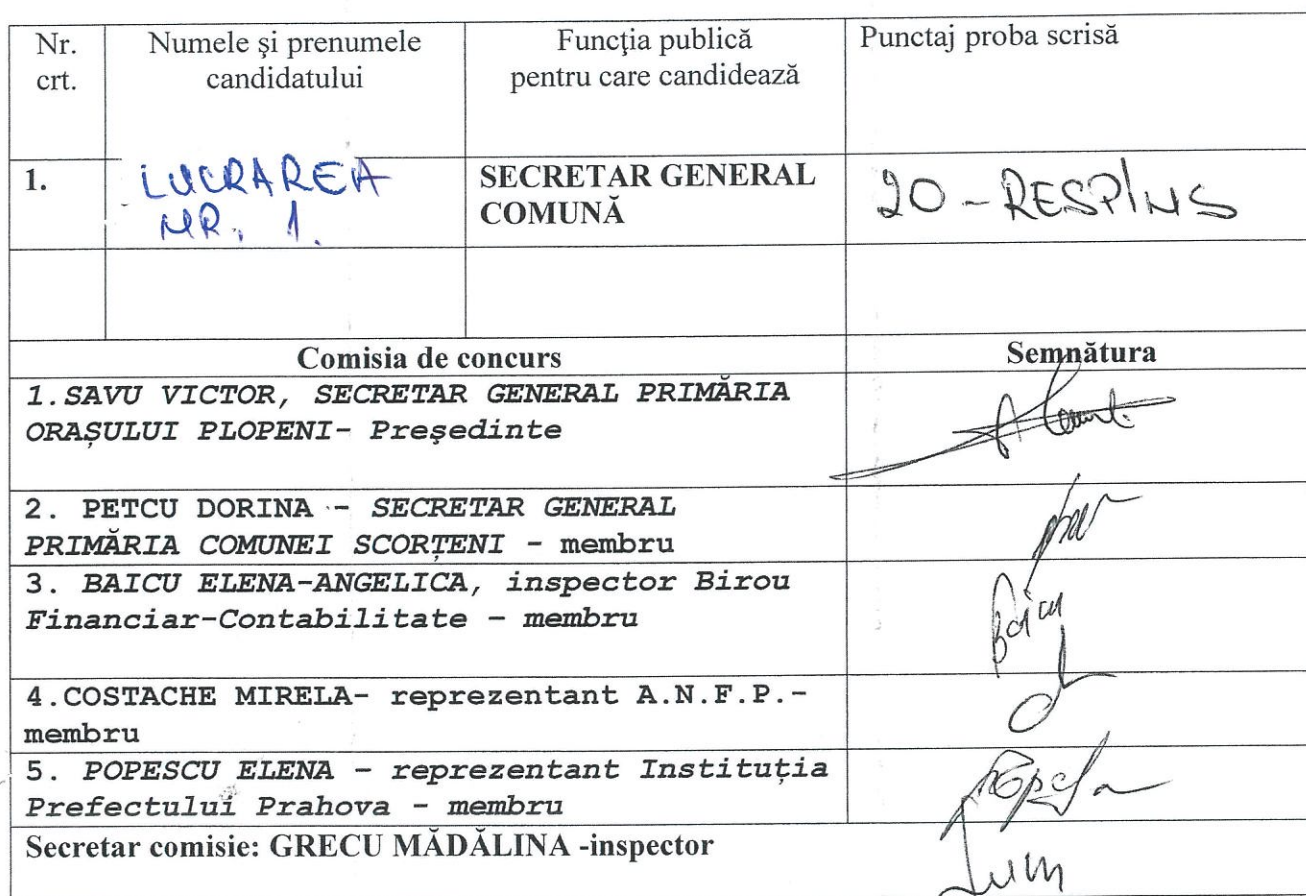 Nr. crt.
Numele şi prenumele candidatului
Funcţia publică pentru care candidează
Punctaj proba scrisă
1.
LUCRAREA
NR. 1.
SECRETAR GENERAL
COMUNĂ
20 - RESPINS
Comisia de concurs
Semnătura
1.SAVU VICTOR, SECRETAR GENERAL PRIMĂRIA
ORAȘULUI PLOPENI- Preşedinte
2. PETCU DORINA - SECRETAR GENERAL
PRIMĂRIA COMUNEI SCORȚENI - membru
3. BAICU ELENA-ANGELICA, inspector Birou
Financiar-Contabilitate - membru
Baicu
4.COSTACHE MIRELA- reprezentant A.N.F.P.-
membru
5. POPESCU ELENA - reprezentant Instituția
Prefectului Prahova - membru
Secretar comisie: GRECU MĂDĂLINA -inspector